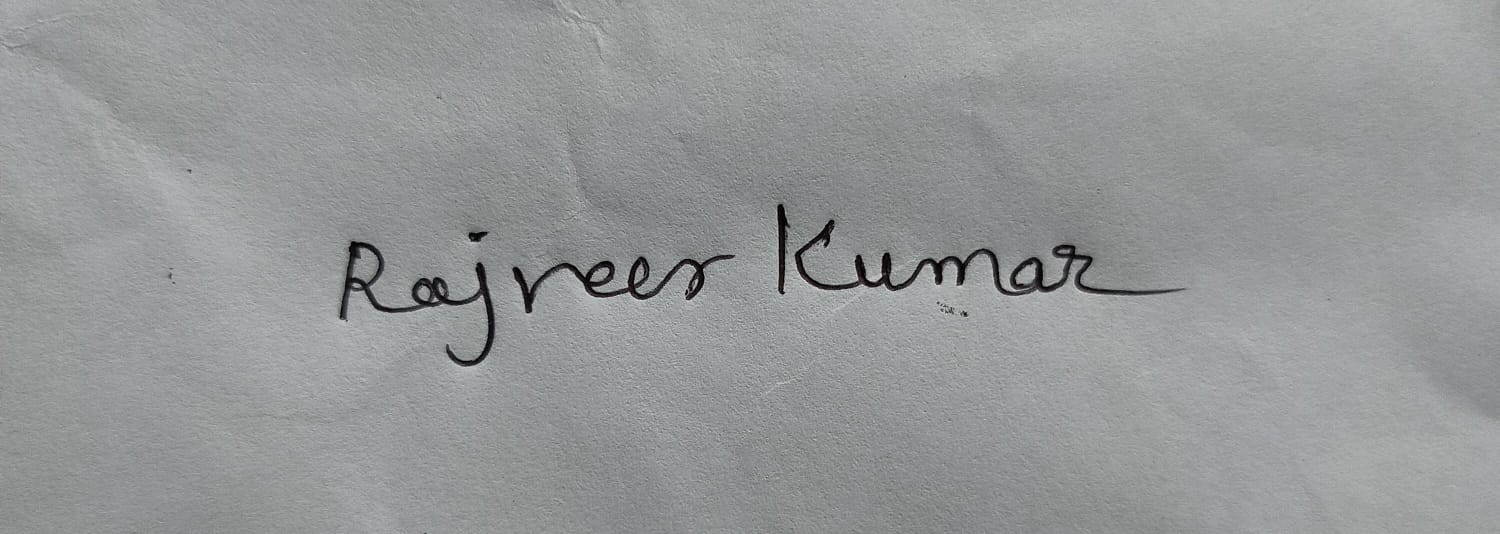 Rajveer Kumar